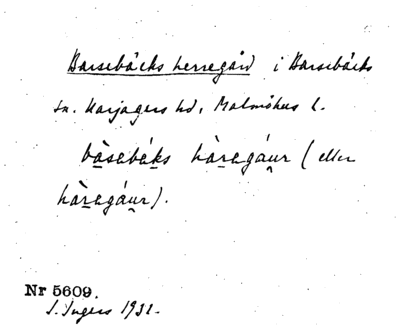 Barsebäcks herregård i Barsebäcks
sn. Harjagers hd, Malmöhus l.
bàsebáks hàregáur (eller
hàregáur).
Nr 5609.
I. Ingers 1931.